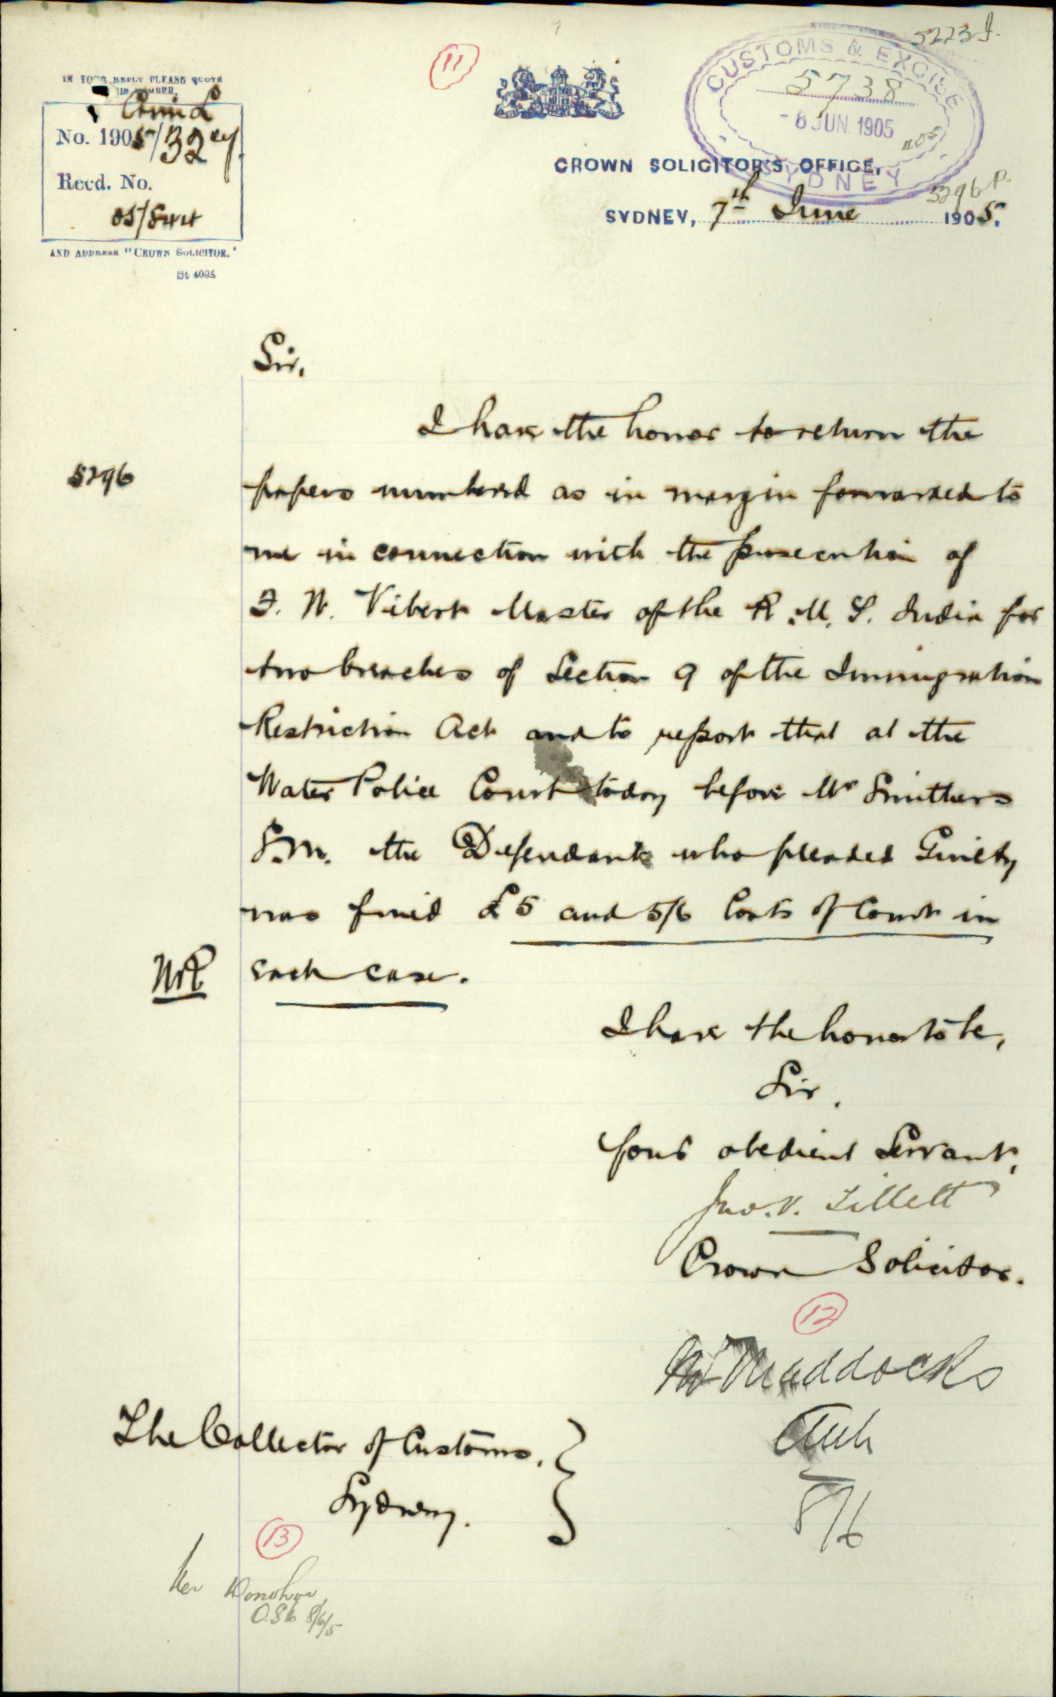 5223 I.
11
CUSTOMS & EXCISE
5738
- 8 JUN. 1905
SYDNEY
IN YOUR REPLY PLEASE QUOTE
THIS NUMBER.
No. 1905/32
Recd. No.
AND ADDRESS "CROWN SOLICITOR."
St 4095
CROWN SOLICITOR'S OFFICE,
5296 P.
SYDNEY, 7th June 1905.
Sir,
I have the honor to return the
5296
papers numbered as in margin forwarded to
me in connection with the prosecution of
F. W. Vibert Master of the R. M. S. India for
two breaches of Section 9 of the Immigration
Restriction Act and to report that at the
Water Police Court today before Mr Smithers
S.M. the Defendant who pleaded Guilty
was fined £5 and 5/6 Costs of Court in
each case.
I have the honor to be,
Sir,
Your obedient Servant,
Jno. V. Tillett
Crown Solicitor.
12
Mr Maddocks
8/6
The Collector of Customs,
Sydney.
13
Donohue
8/6/5